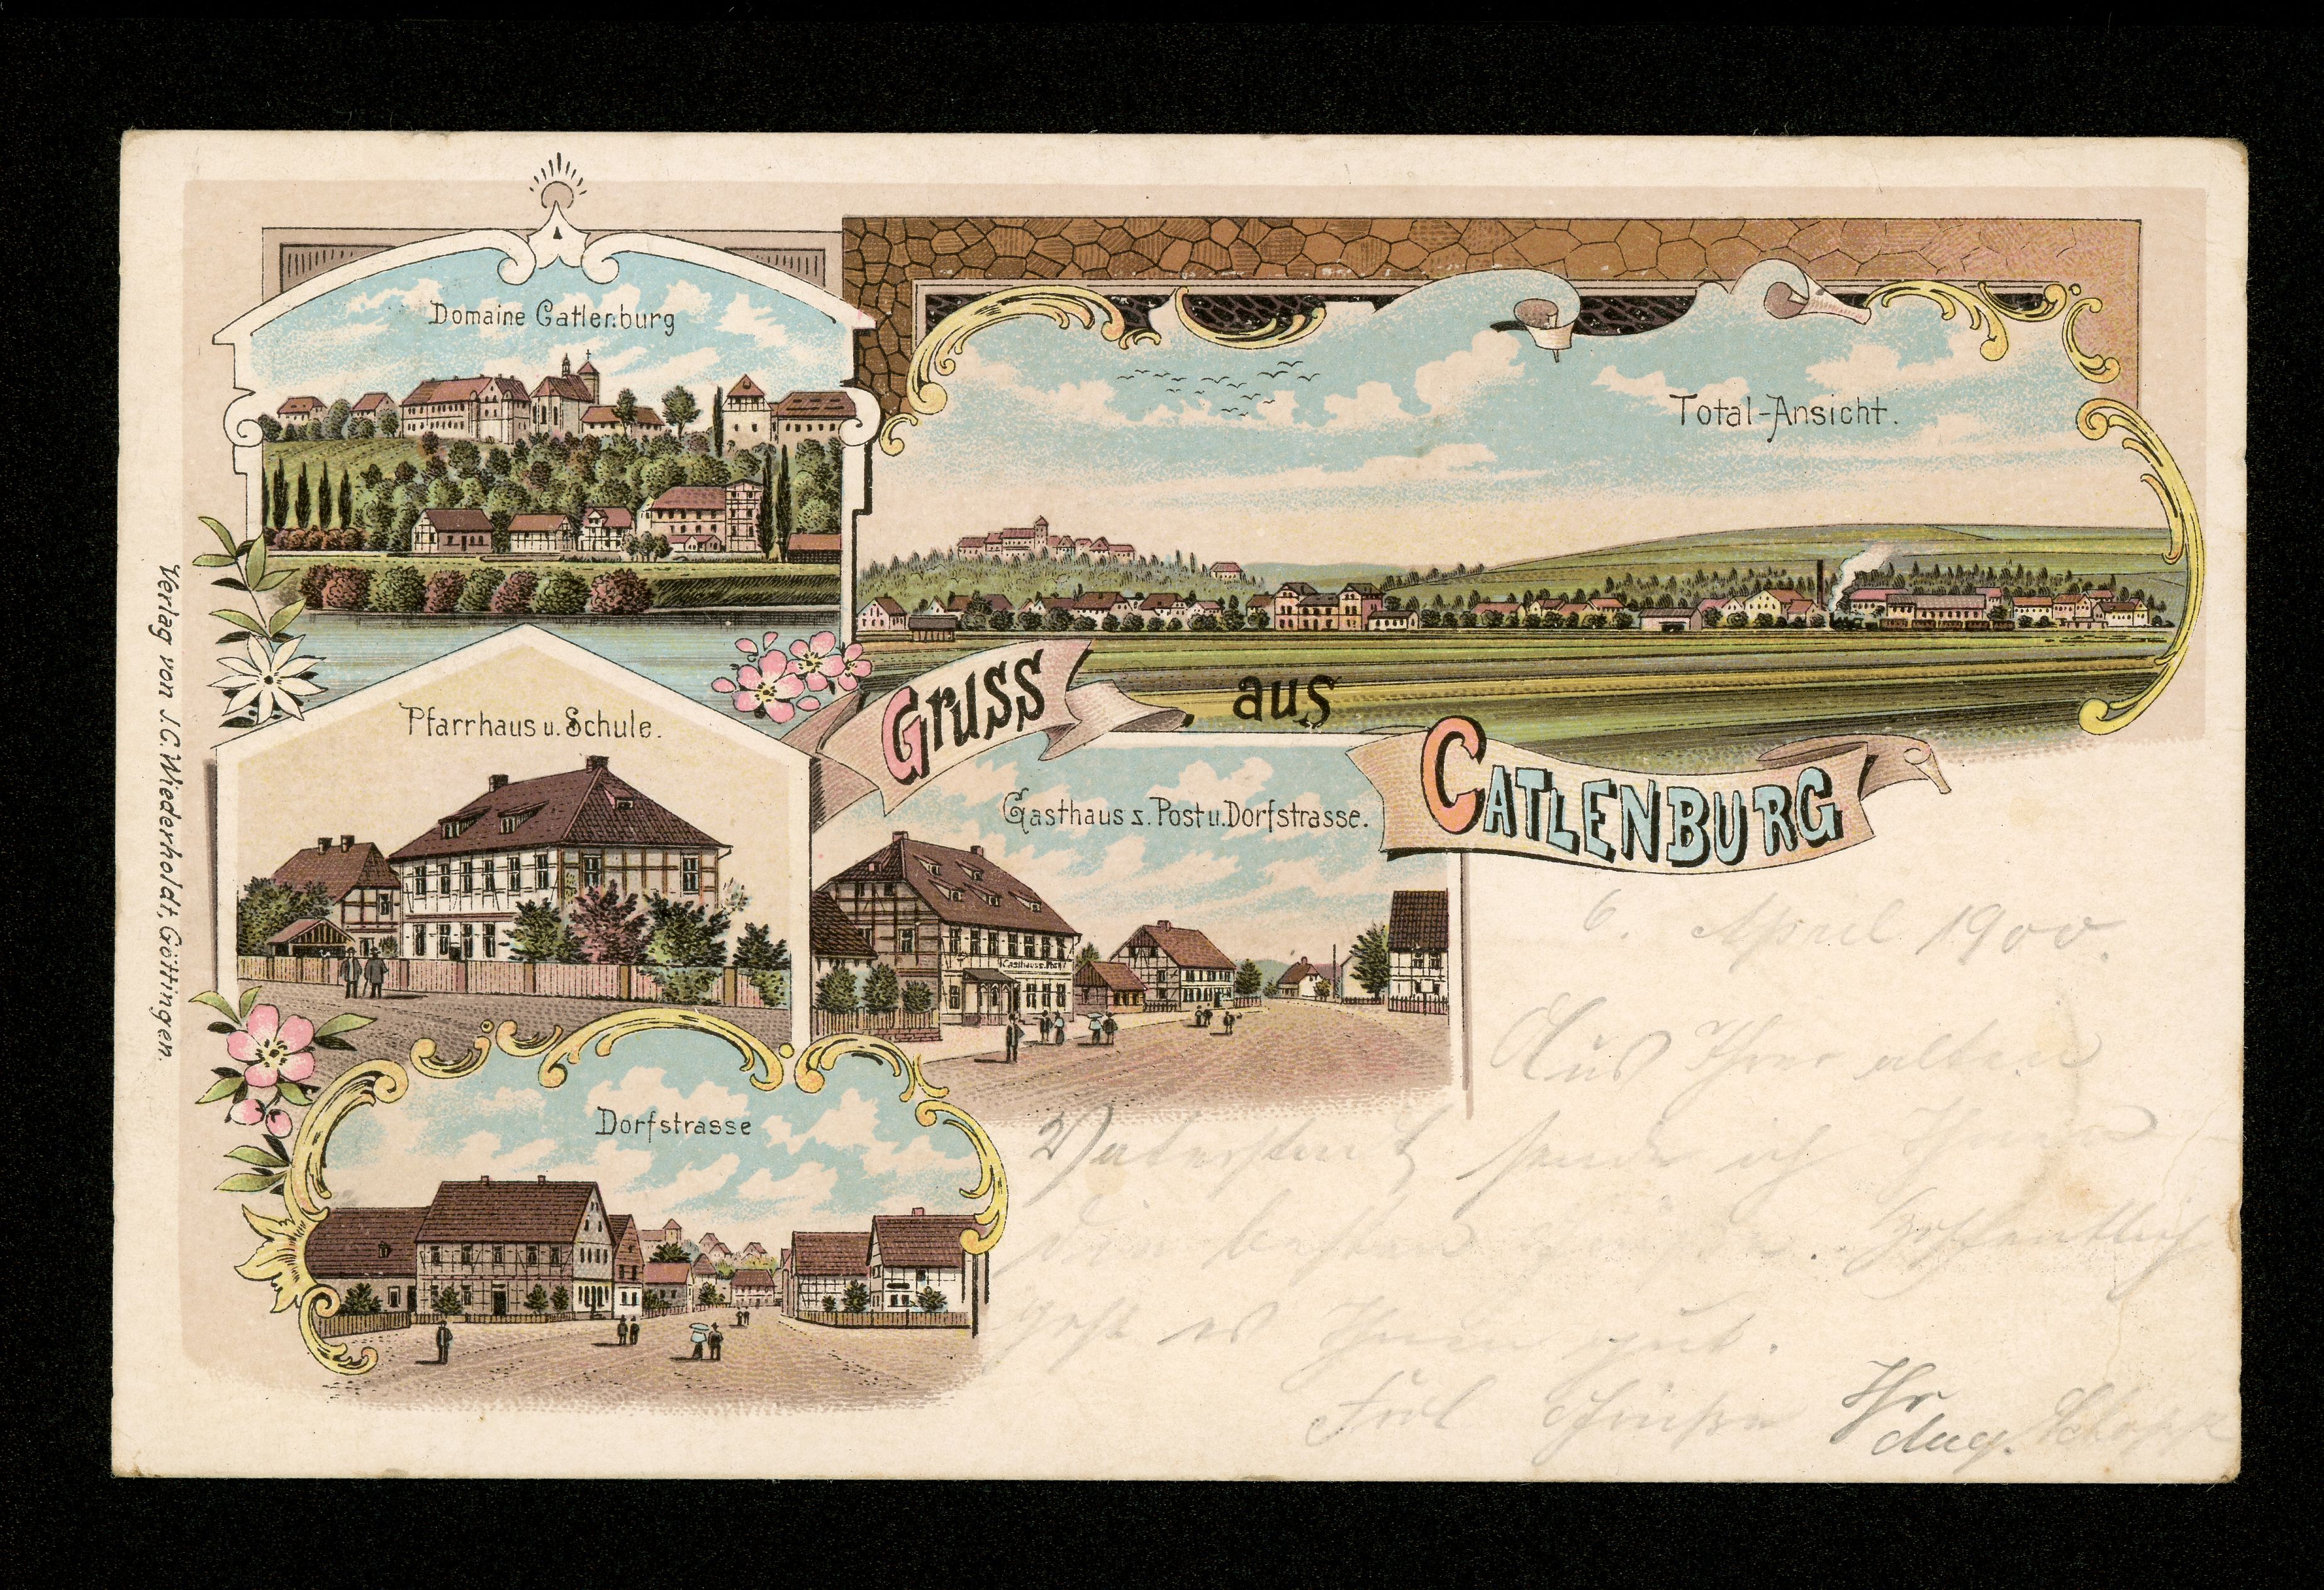 Domaine Catlenburg
Total-Ansicht.
Gruss aus
Catlenburg
Pfarrhaus u. Schule.
Gasthaus z. Post u. Dorfstrasse.
Gasthaus z. Post
Dorfstrasse
Verlag von J.C. Wiederholdt, Göttingen.
6. April 1900.
Aus Ihrer alten
Vaterstadt sende ich Ihnen
die besten Grüsse. Hoffentlich
geht es Ihnen gut.
Ihr
Aug.